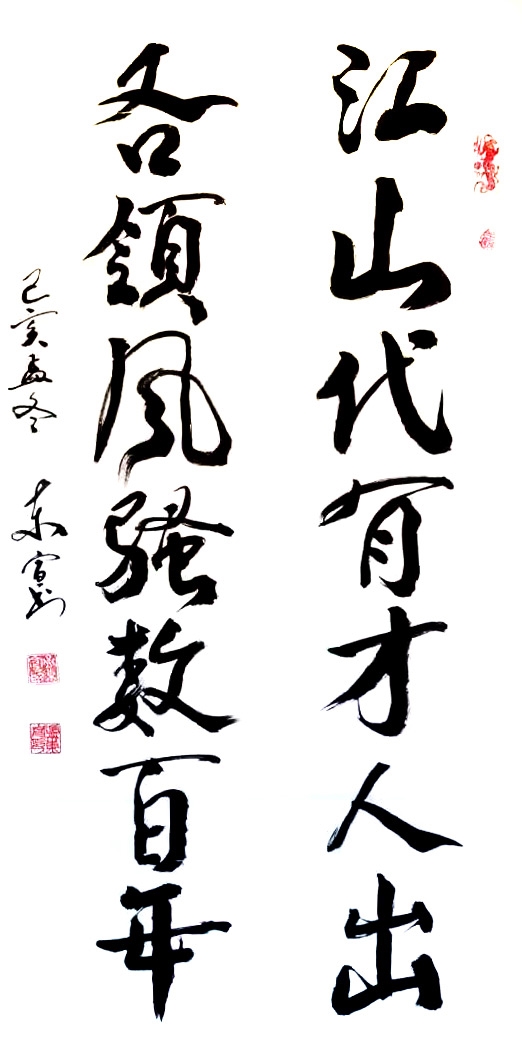 江山代有才人出
各領風騷数百年
己亥孟冬 东寅书